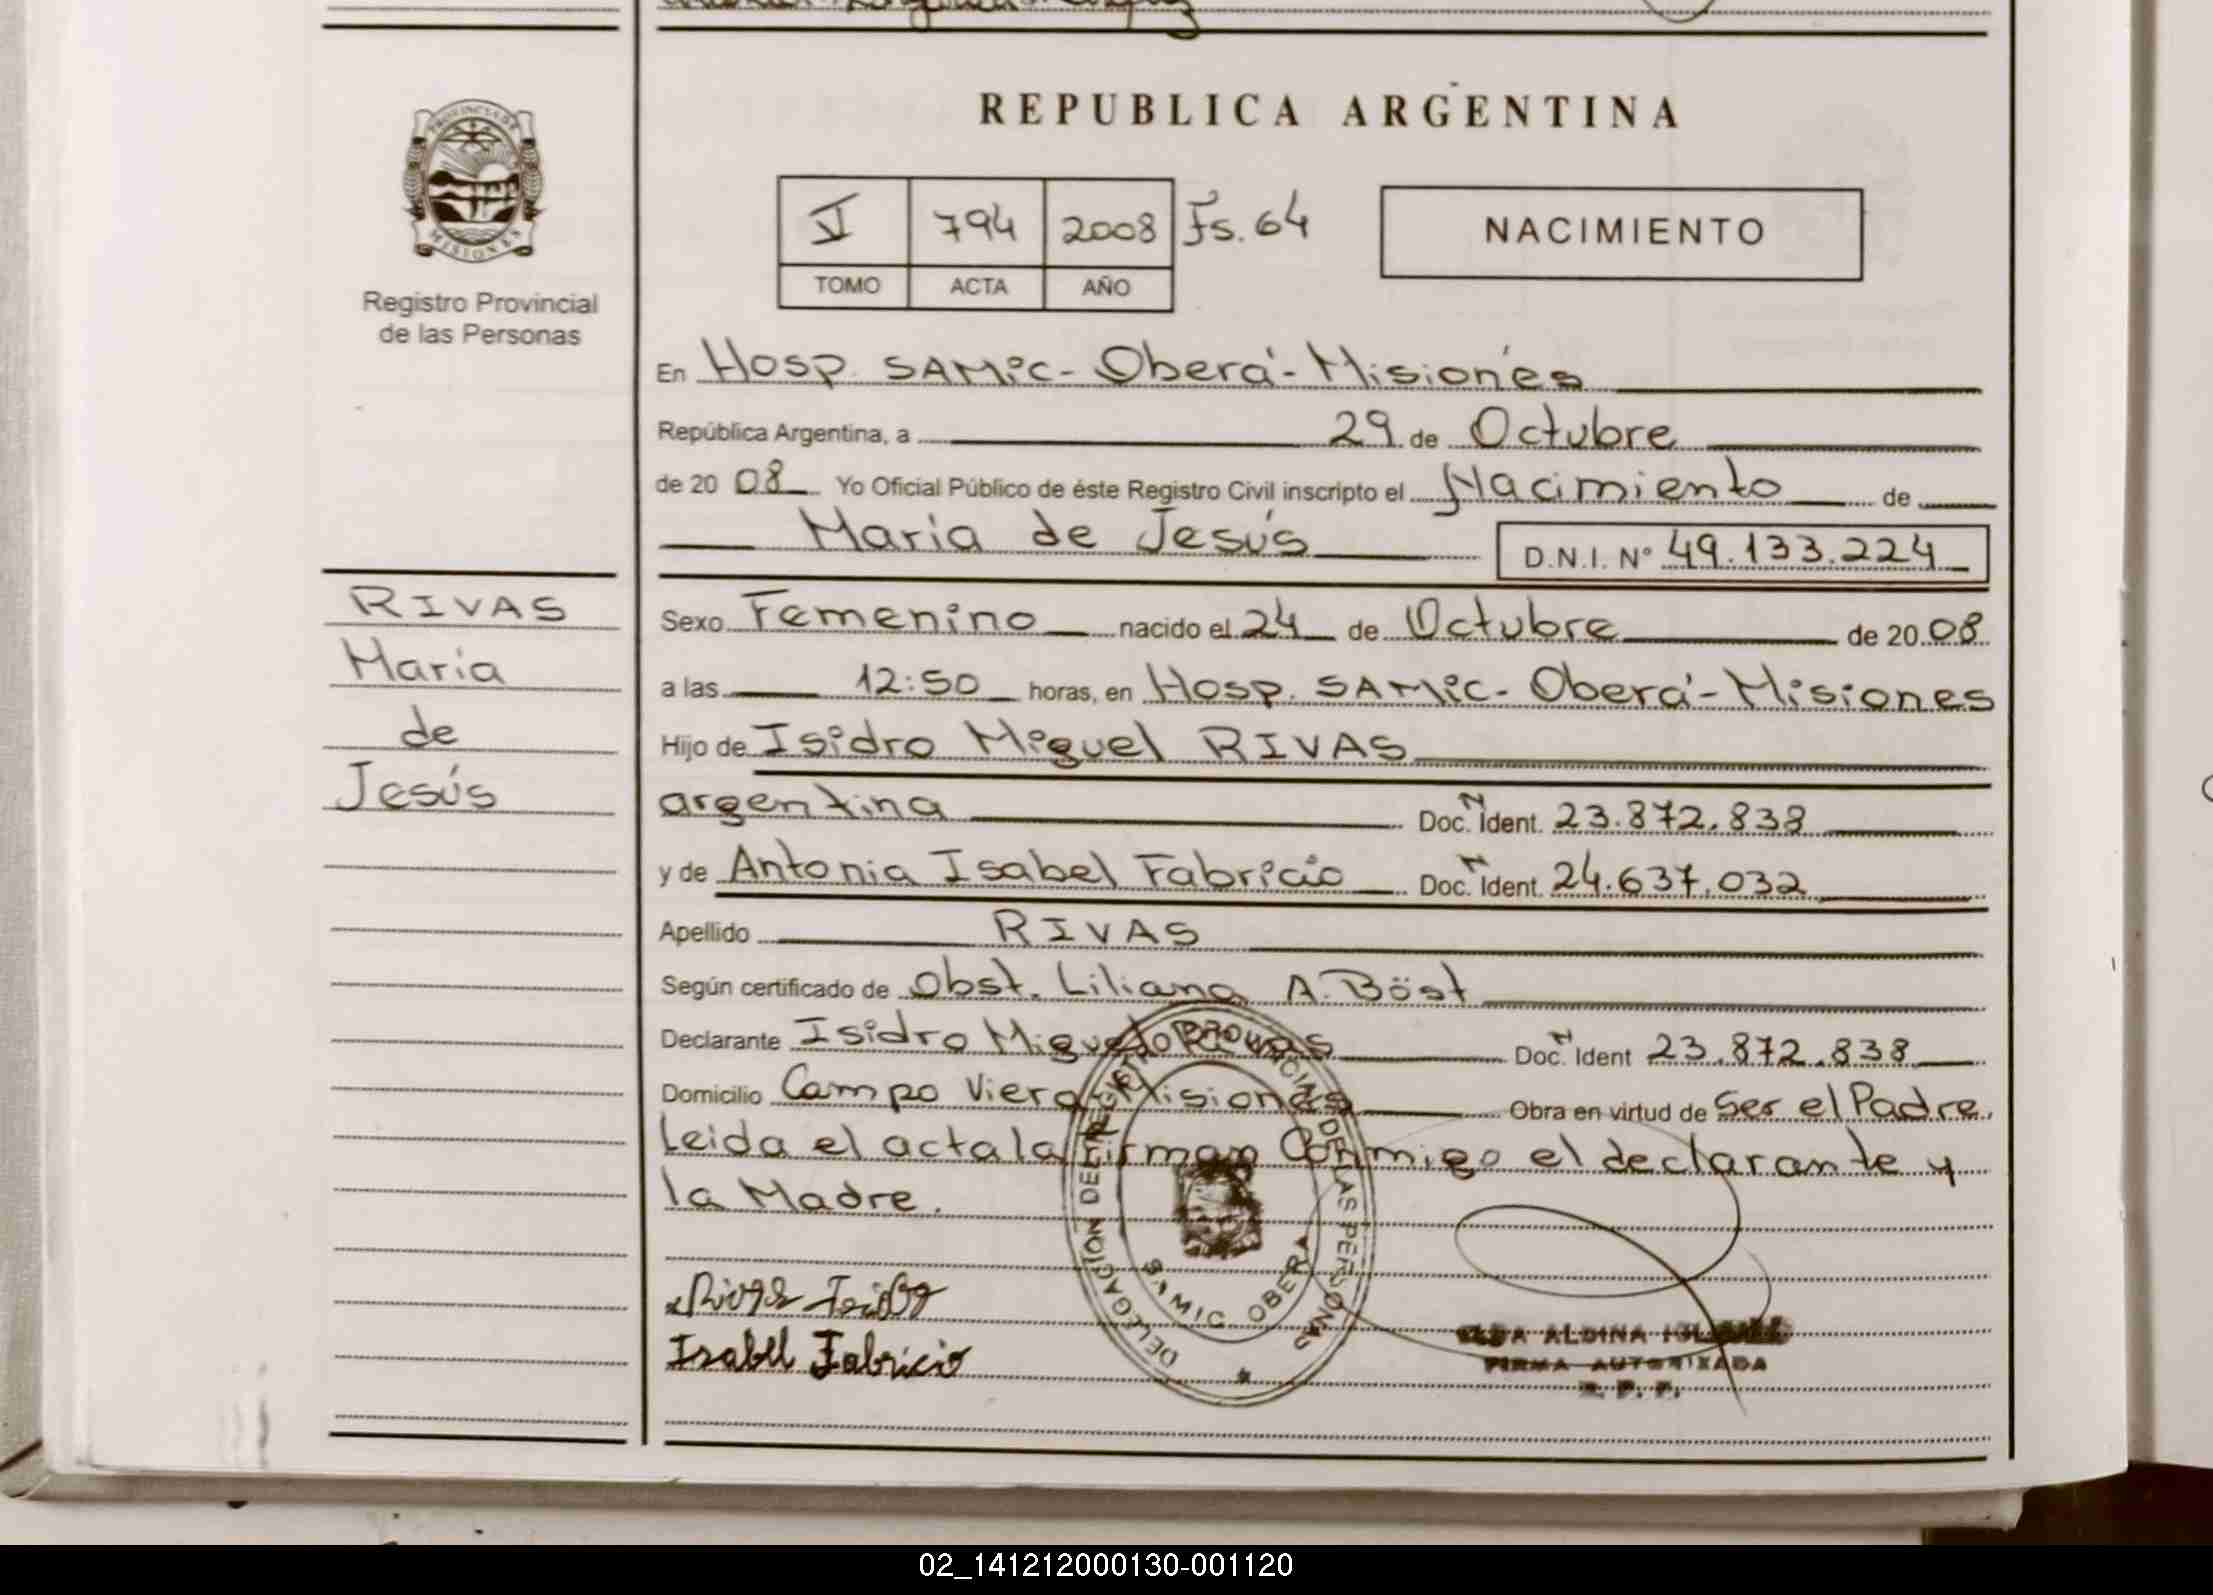 REPUBLICA ARGENTINA
PROVINCIA DE
MISIONES
Registro Provincial
de las Personas
V 794 2008 Fs. 64
TOMO ACTA AÑO
NACIMIENTO
En Hosp. SAMic - Oberá - Misiones
República Argentina, a 29 de Octubre
de 20 08 Yo Oficial Público de éste Registro Civil inscripto el Nacimiento de
María de Jesús D.N.I. Nº 49.133.224
RIVAS
María
de
Jesús
Sexo Femenino nacido el 24 de Octubre de 20 08
a las 12:50 horas, en Hosp. SAMic - Oberá - Misiones
Hijo de Isidro Miguel RIVAS
argentina Doc. N Ident. 23.872.838
y de Antonia Isabel Fabricio Doc. N Ident. 24.637.032
Apellido RIVAS
Según certificado de Obst. Liliana A. Böst
Declarante Isidro Miguel Rivas Doc. N Ident 23.872.838
Domicilio Campo Viera Misiones Obra en virtud de Ser el Padre.
Leida el acta la firman Conmigo el declarante y
la Madre.
DELEGACIÓN DEL REGISTRO PROVINCIAL DE LAS PERSONAS
SAMIC OBERA
Rivas Isidro
Isabel Fabricio
ALDINA
FIRMA AUTORIZADA
R. P. P.
02_141212000130-001120